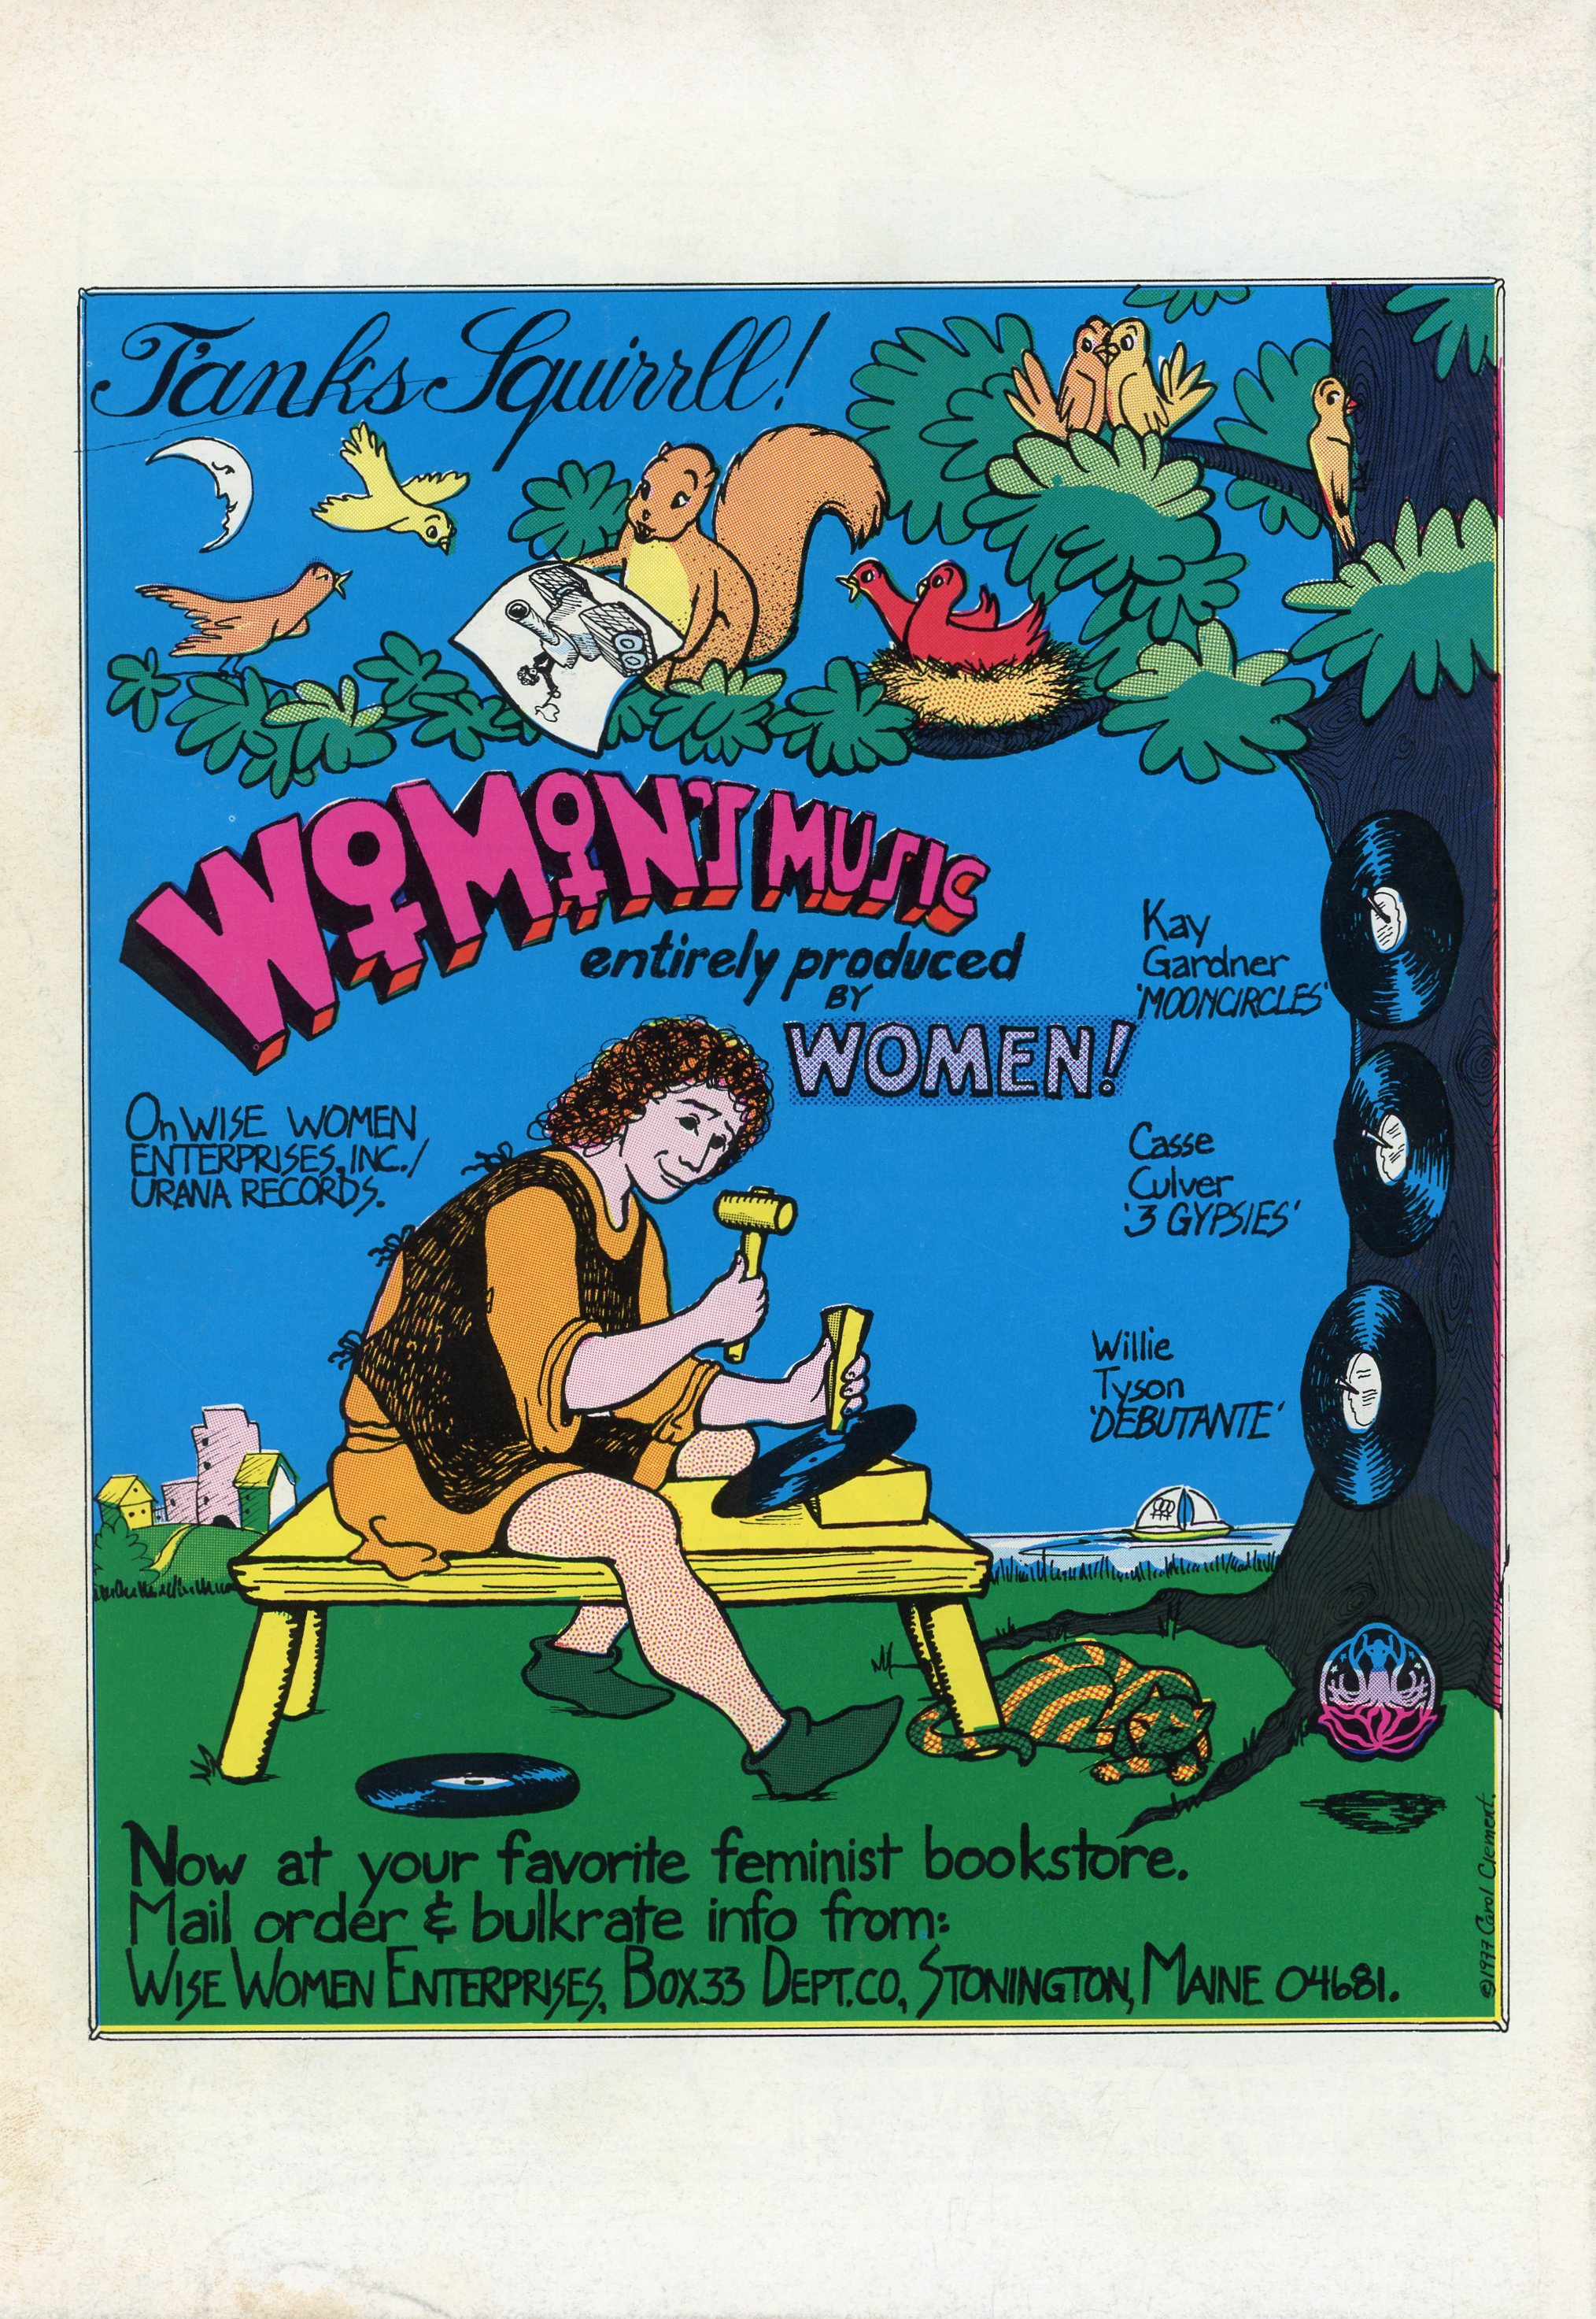 Tanks Squirrll!
WOMON'S MUSIC
entirely produced
BY
WOMEN!
On WISE WOMEN
ENTERPRISES, INC./
URANA RECORDS.
Kay
Gardner
'MOONCIRCLES'
Casse
Culver
'3 GYPSIES'
Willie
Tyson
'DEBUTANTE'
Now at your favorite feminist bookstore.
Mail order & bulkrate info from:
WISE WOMEN ENTERPRISES, BOX.33 DEPT.CO, STONINGTON, MAINE 04681.
©1977 Carol Clement.